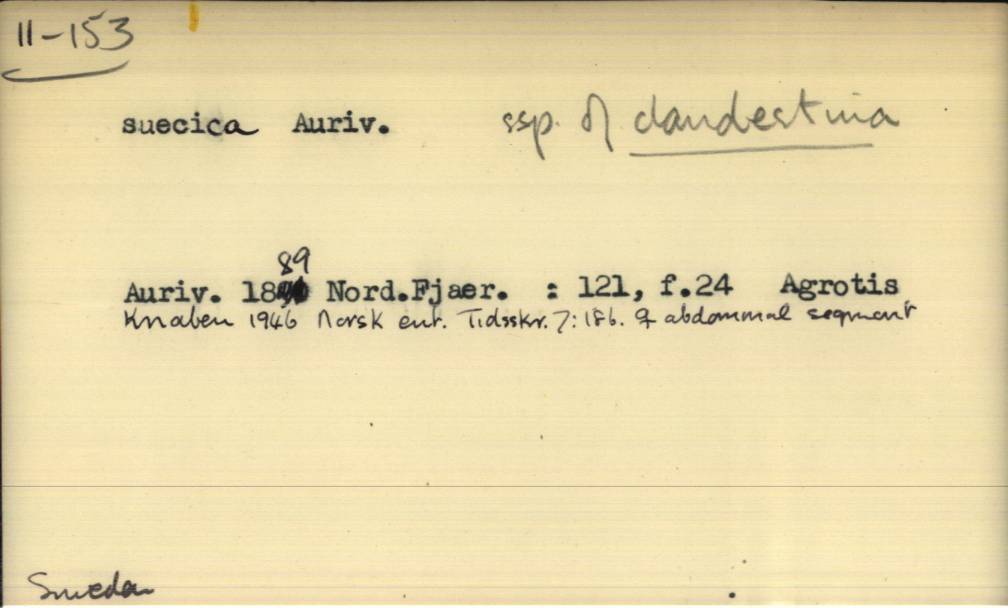 11-153
suecica Auriv. ssp. of clandestina
89
Auriv. 18 Nord.Fjaer. : 121, f.24 Agrotis
Knaben 1946 Norsk ent. Tidsskr. 7: 186. ♀ abdominal segment
Sweden